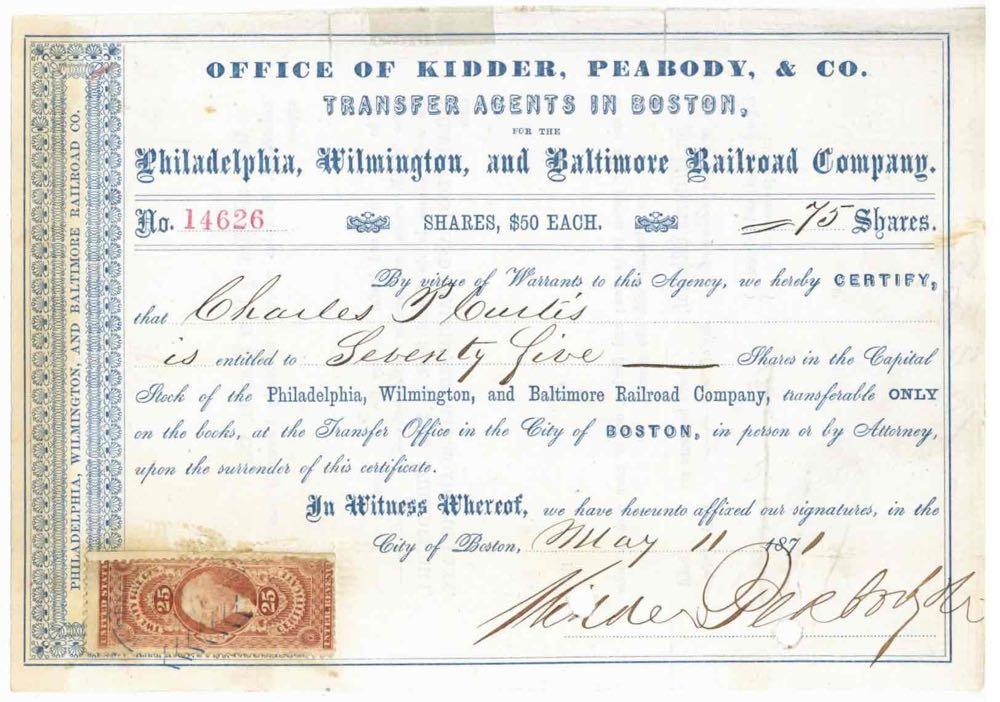 OFFICE OF KIDDER, PEABODY, & CO.
TRANSFER AGENTS IN BOSTON,
FOR THE
Philadelphia, Wilmington, and Baltimore Railroad Company.
No. 14626 SHARES, $50 EACH. 75 Shares.
By virtue of Warrants to this Agency, we hereby CERTIFY,
that Charles P Curtis
is entitled to Seventy five Shares in the Capital
Stock of the Philadelphia, Wilmington, and Baltimore Railroad Company, transferable ONLY
on the books, at the Transfer Office in the City of BOSTON, in person or by Attorney,
upon the surrender of this certificate.
In Witness Whereof, we have hereunto affixed our signatures, in the
City of Boston, May 11 1871
Kidder Peabody &Co
PHILADELPHIA, WILMINGTON, AND BALTIMORE RAILROAD CO.
UNITED STATES
25 25
INTER. REVENUE